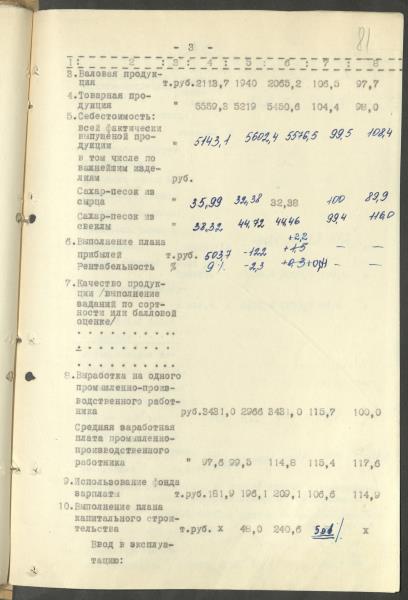 81
- 3 -
1: 2 :3 : 4 : 5 : 6 : 7 : 8
3.Валовая продук-
ция т.руб.2113,7 1940 2065,2 106,5 97,7
4.Товарная про-
дукция " 5559,3 5219 5450,6 104,4 98,0
5.Себестоимость:
всей фактически
выпущеной про-
дукции " 5143,1 5602,4 5576,5 99,5 108,4
в том числе по
важнейшим изде-
лиям руб.
Сахар-песок из
сырца " 35,99 32,38 32,38 100 89,9
Сахар-песок из
свеклы " 38,32 44,72 44,46 99,4 116,0
+2,2
6.Выполнение плана
прибылей т.руб. 503,7 -122 — —
Рентабельность % 9% -2,3 — —
7.Качество продук-
ции /выполнение
заданий по сорт-
ности или балловой
оценке/
. . . . . . . . . .
. . . . . . . . . .
. . . . . . . . . .
8.Выработка на одного
промышленно-произ-
водственного работ-
ника руб.3431,0 2966 3431,0 115,7 100,0
Средняя заработная
плата промышленно-
производственного
работника " 97,6 99,5 114,8 115,4 117,6
9.Использование фонда
зарплаты т.руб.181,9 196,1 209,1 106,6 114,9
10.Выполнение плана
капитального строи-
тельства т.руб. х 48,0 240,6 501% х
Ввод в эксплуа-
тацию: